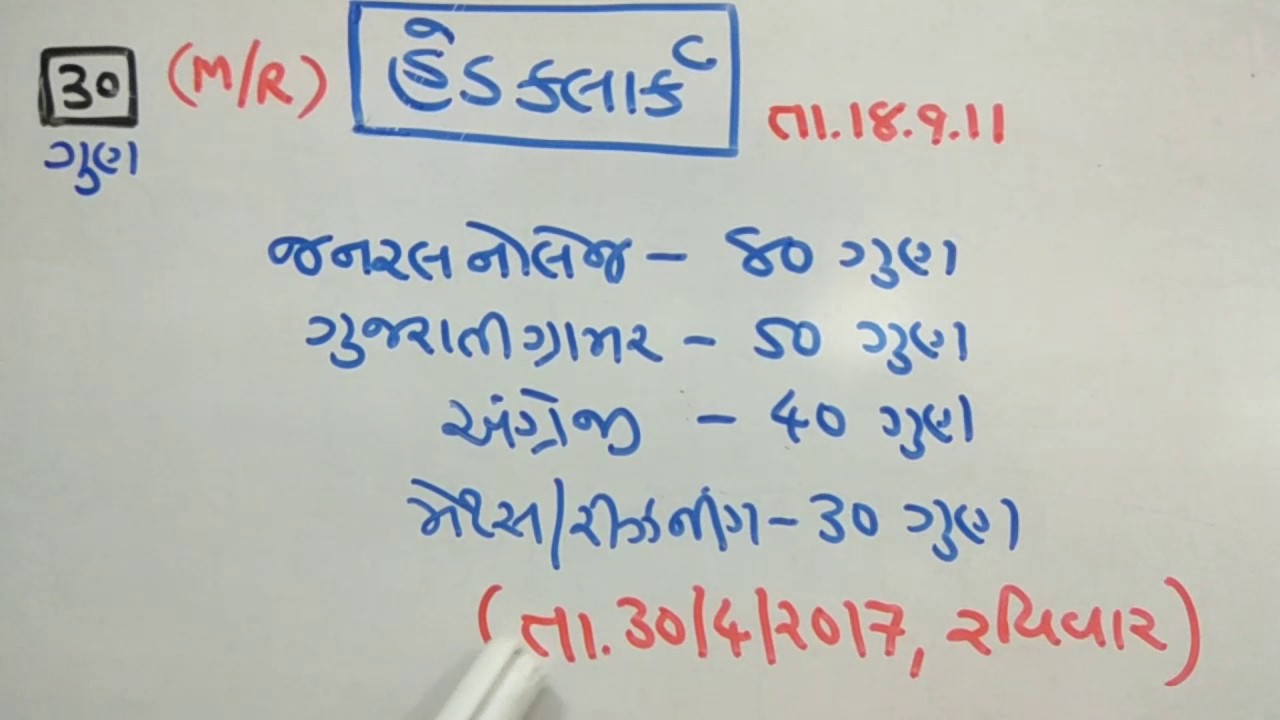 30 (M/R) હેડ કલાર્ક
ગુણ
તા.18.9.11
જનરલ નોલેજ – 80 ગુણ
ગુજરાતી ગ્રામર – 50 ગુણ
અંગ્રેજી – 40 ગુણ
મેથ્સ/રીઝનીંગ – 30 ગુણ
(તા.30/4/2017, રવિવાર)